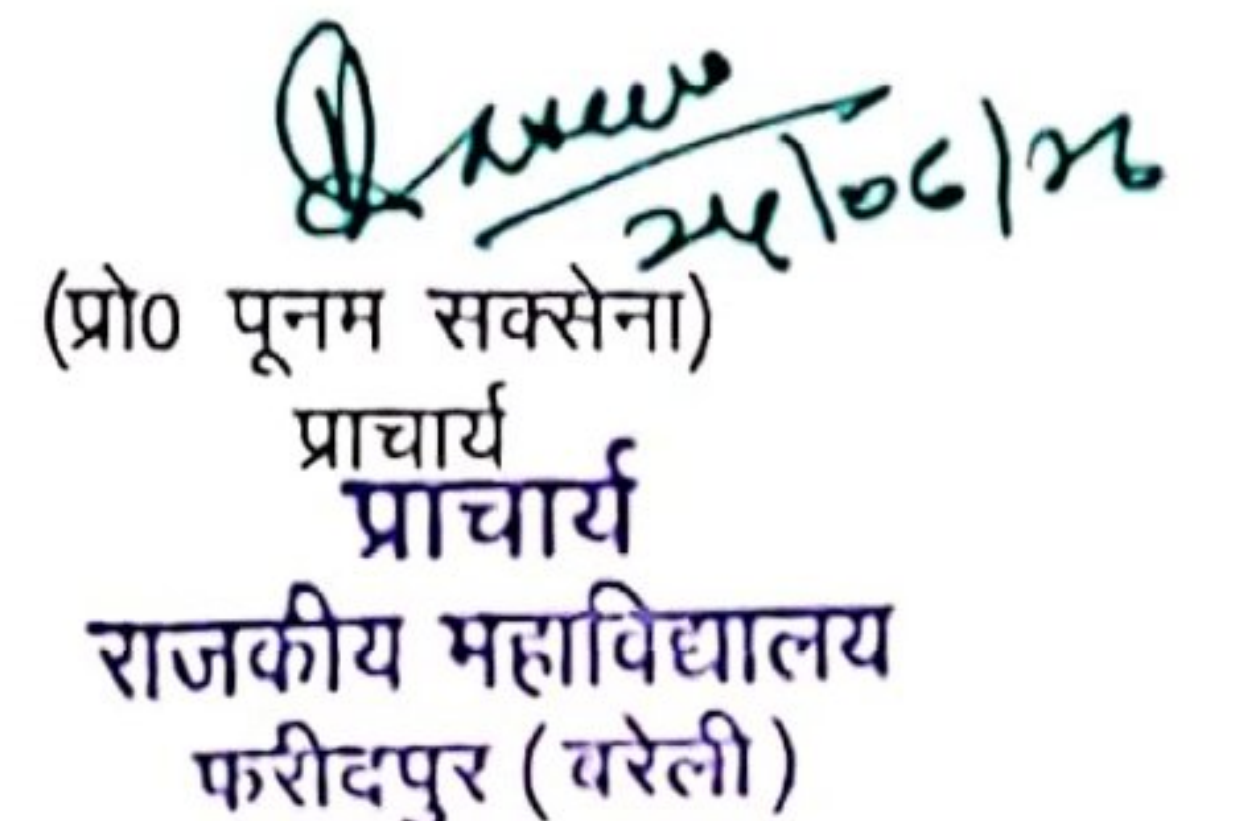 24/06/26
(प्रो0 पूनम सक्सेना)
प्राचार्य
प्राचार्य
राजकीय महाविद्यालय
फरीदपुर (बरेली)